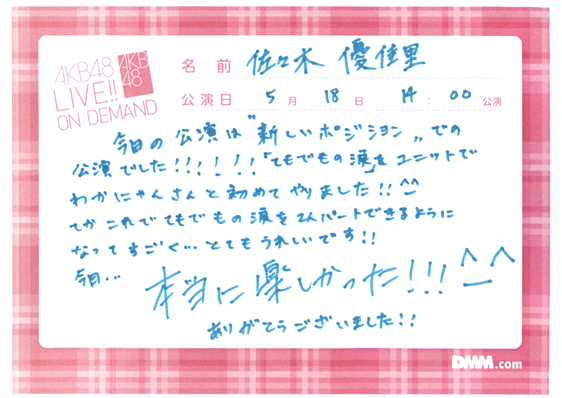 AKB48
LIVE!!
ON DEMAND
AKB
48
名 前 佐々木 優佳里
公演日 5 月 18 日 14 : 00 公演
今日の公演は"新しいポジション„での
公演でした!!!!!!「てもでもの涙」をユニットで
わかにゃんさんと初めてやりました!!^_^
てかこれでてもでもの涙を2人パートできるように
なってすごく…とてもうれしいです!!
今日…
本当に楽しかった!!!^_^
ありがとうございました!!
DMM.com